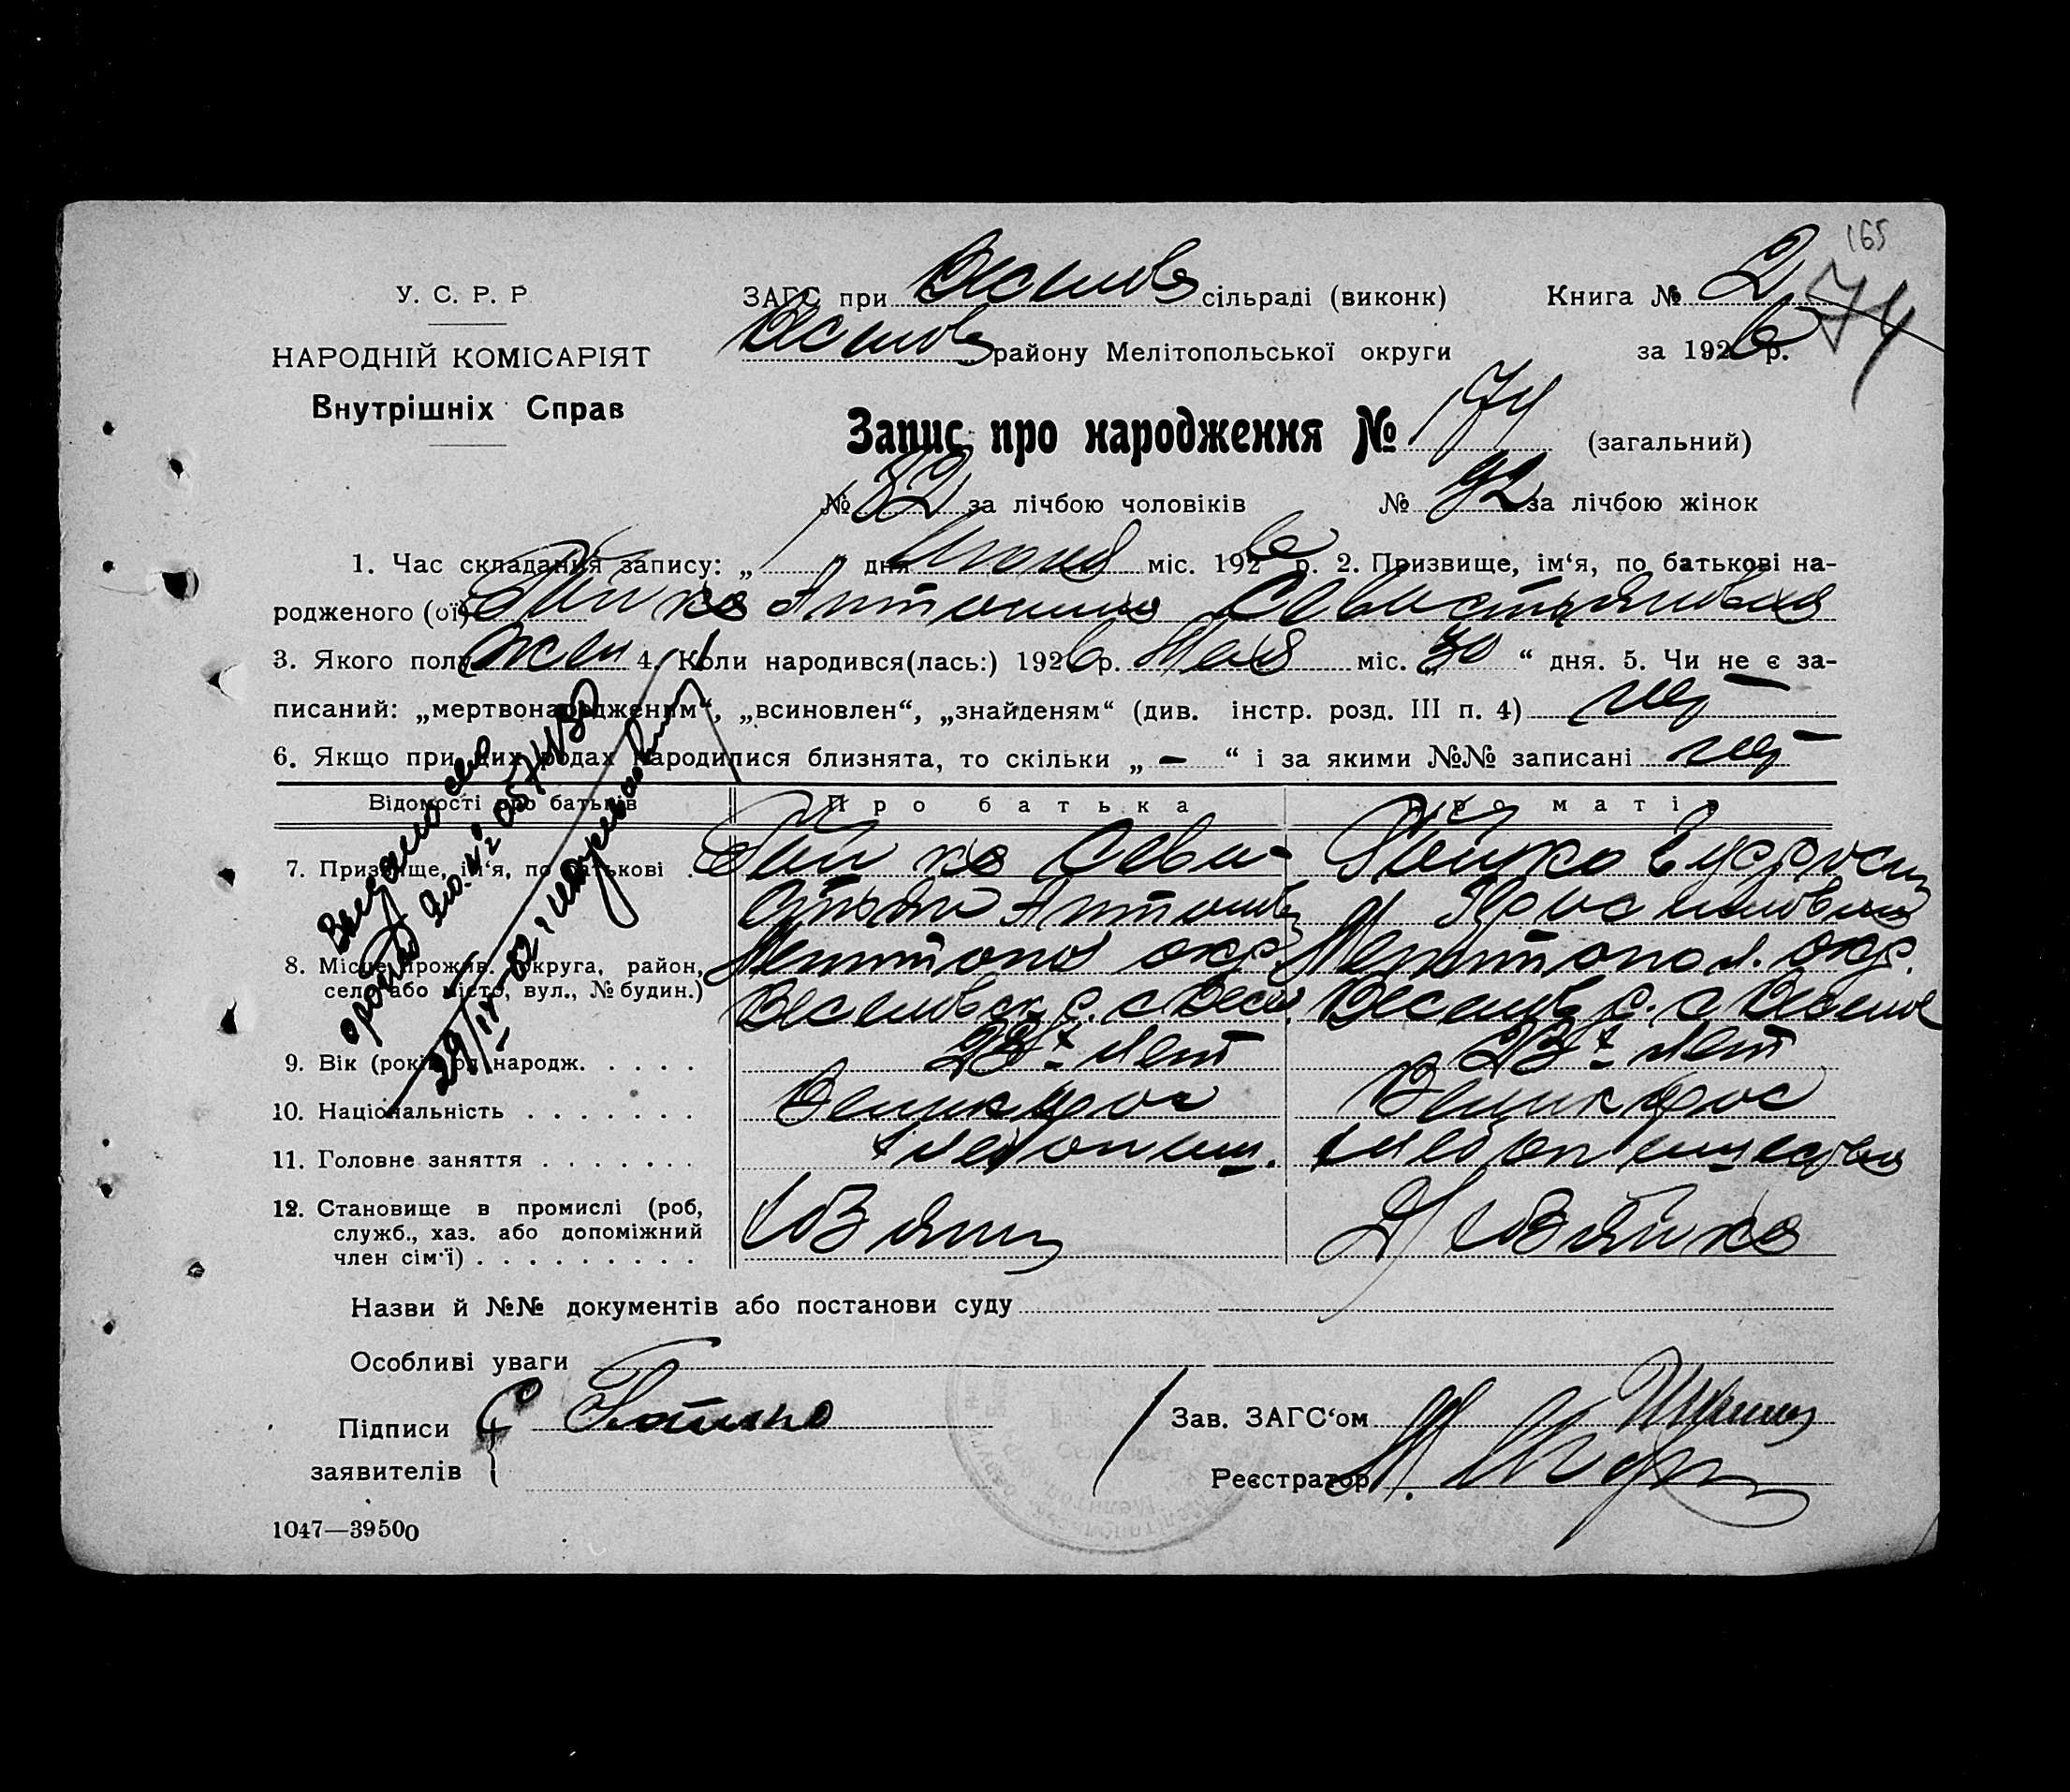 165
У. С. Р. Р
НАРОДНІЙ КОМІСАРІЯТ
Внутрішніх Справ
ЗАГС при Веселов сільраді (виконк)
Веселов району Мелітопольської округи
Книга № 2
за 1926 р.
74
Запис про народження № 174 (загальний)
№ 82 за лічбою чоловіків № 92 за лічбою жінок
1. Час складання запису: „ 1 " дня Июня міс. 1926 р. 2. Призвище, ім'я, по батькові на-
родженого (ої) Гайко Антонина Севастьяновна
3. Якого полу жен 4. Коли народився(лась:) 1926 р. Мая міс. „30 “ дня. 5. Чи не є за-
писаний: „мертвонародженим“, „всиновлен“, „знайденям“ (див. інстр. розд. III п. 4) нет
6. Якщо при цих родах народилися близнята, то скільки „ — “ і за якими №№ записані нет
Відомості про батьків Про батька Про матір
7. Призвище, ім'я, по батькові . Гайко Сева- Гайко Ефросин
стьян Антонов
8. Місце прожив. (округа, район, Мелитопол окр. Мелитопол. окр.
село або місто, вул., № будин.) Веселовск. р. с Весел. Веселов р. с Веселое
9. Вік (років) од народж. . . . . 28 лет 23 лет
10. Національність . . . . . . . Великорос Великорос
11. Головне заняття . . . . . . . Хлебопаш.
12. Становище в промислі (роб,
служб., хаз. або допоміжний
член сім'ї) . . . . . . . . .
Назви й №№ документів або постанови суду
Особливі уваги
Підписи С Гайко
заявителів
Зав. ЗАГС'ом
Реєстратор
1047—39500